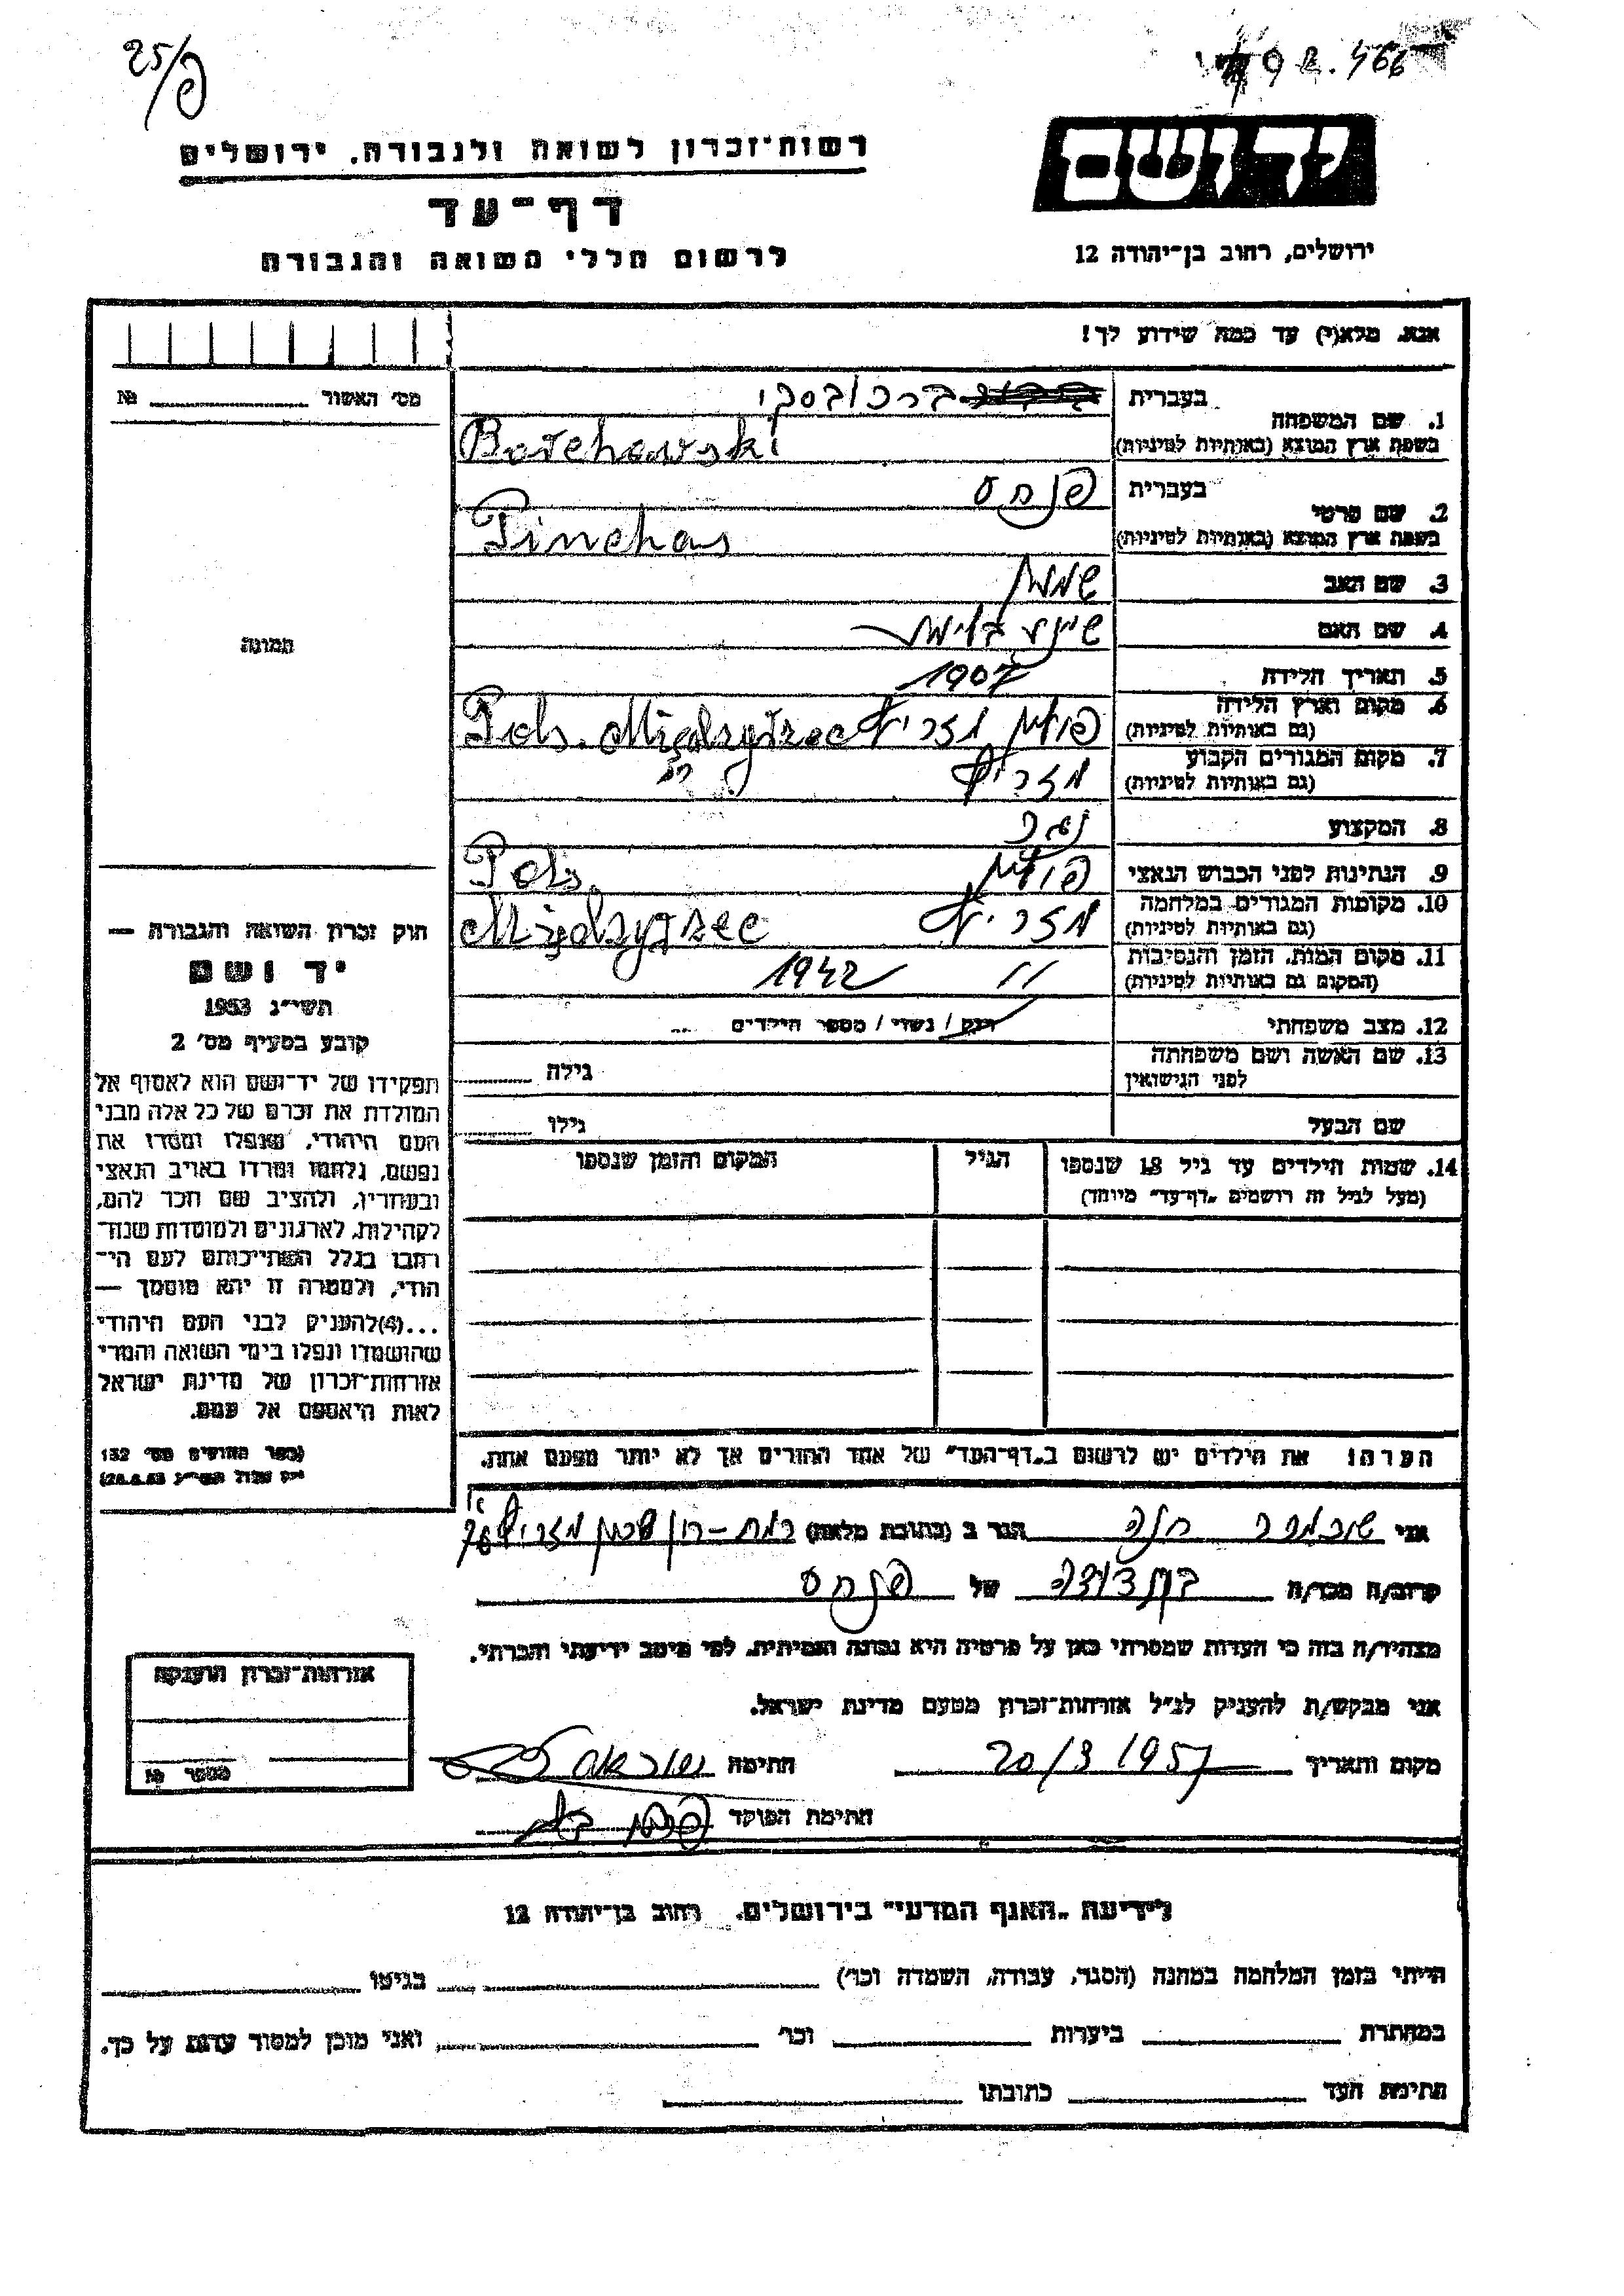 25/פ
יד ושם
רשות־זכרון לשואה ולגבורה, ירושלים
דף־עד
לרשום חללי השואה והגבורה
ירושלים, רחוב בן־יהודה 12
אנא, מלא(י) עד כמה שידוע לך!
מס׳ האשור № 
1. שם המשפחה
בעברית ברכובסקי
בשפת ארץ המוצא (באותיות לטיניות) Borchowski
2. שם פרטי
בעברית פנחס
בשפת ארץ המוצא (באותיות לטיניות) Pinchas
3. שם האב
4. שם האם
5. תאריך הלידה 1907
6. מקום וארץ הלידה
(גם באותיות לטיניות) פולין מזריץ Pols. Międzyrzec
7. מקום המגורים הקבוע
(גם באותיות לטיניות) מזריץ
8. המקצוע נגר
9. הנתינות לפני הכבוש הנאצי פולין Pols.
10. מקומות המגורים במלחמה
(גם באותיות לטיניות) מזריץ Międzyrzec
11. מקום המות, הזמן והנסיבות
(המקום גם באותיות לטיניות) 〃 1942
12. מצב משפחתי רוק / נשוי / מספר הילדים
13. שם האשה ושם משפחתה
לפני הנישואין גילה
שם הבעל גילו
14. שמות הילדים עד גיל 18 שנספו הגיל המקום והזמן שנספו
(מעל לגיל זה רושמים „דף־עד״ מיוחד)
הערה: את הילדים יש לרשום ב„דף־העד״ של אחד ההורים אך לא יותר מפעם אחת.
תמונה
חוק זכרון השואה והגבורה —
יד ושם
תשי״ג 1953
קובע בסעיף מס׳ 2
תפקידו של יד־ושם הוא לאסוף אל
המולדת את זכרם של כל אלה מבני
העם היהודי, שנפלו ומסרו את
נפשם, נלחמו ומרדו באויב הנאצי
ובעוזריו, ולהציב שם וזכר להם,
לקהילות, לארגונים ולמוסדות שנח־
רבו בגלל השתייכותם לעם הי־
הודי, ולמטרה זו יהא מוסמך —
...(4)להעניק לבני העם היהודי
שהושמדו ונפלו בימי השואה והמרי
אזרחות־זכרון של מדינת ישראל
לאות היאספם אל עמם.
(ספר החוקים מס׳ 132
אני חנה הגר ב (כתובת מלאה) רמת־
קרוב/ה מכר/ה בן דודה של פנחס
מצהיר/ה בזה כי העדות שמסרתי כאן על פרטיה היא נכונה ואמיתית, לפי מיטב ידיעתי והכרתי.
אני מבקש/ת להעניק לנ״ל אזרחות־זכרון מטעם מדינת ישראל.
מקום ותאריך 20/3 1957 חתימה
חתימת הפוקד
אזרחות־זכרון הוענקה
מספר №
לידיעת „האגף המדעי״ בירושלים, רחוב בן־יהודה 12
הייתי בזמן המלחמה במחנה (הסגר, עבודה, השמדה וכו׳) בגיטו
במחתרת ביערות וכו׳ ואני מוכן למסור עדות על כך.
חתימת העד כתובתו